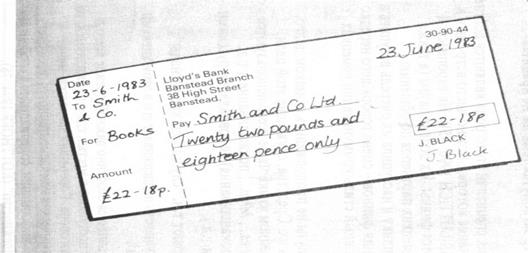 Date
23-6-1983
To Smith
& Co.
For Books
Amount
£22-18p.
Lloyd's Bank
Banstead Branch
38 High Street
Banstead.
30-90-44
23 June 1983
Pay Smith and Co Ltd.
Twenty two pounds and
eighteen pence only
£22-18p
J. BLACK
J. Black